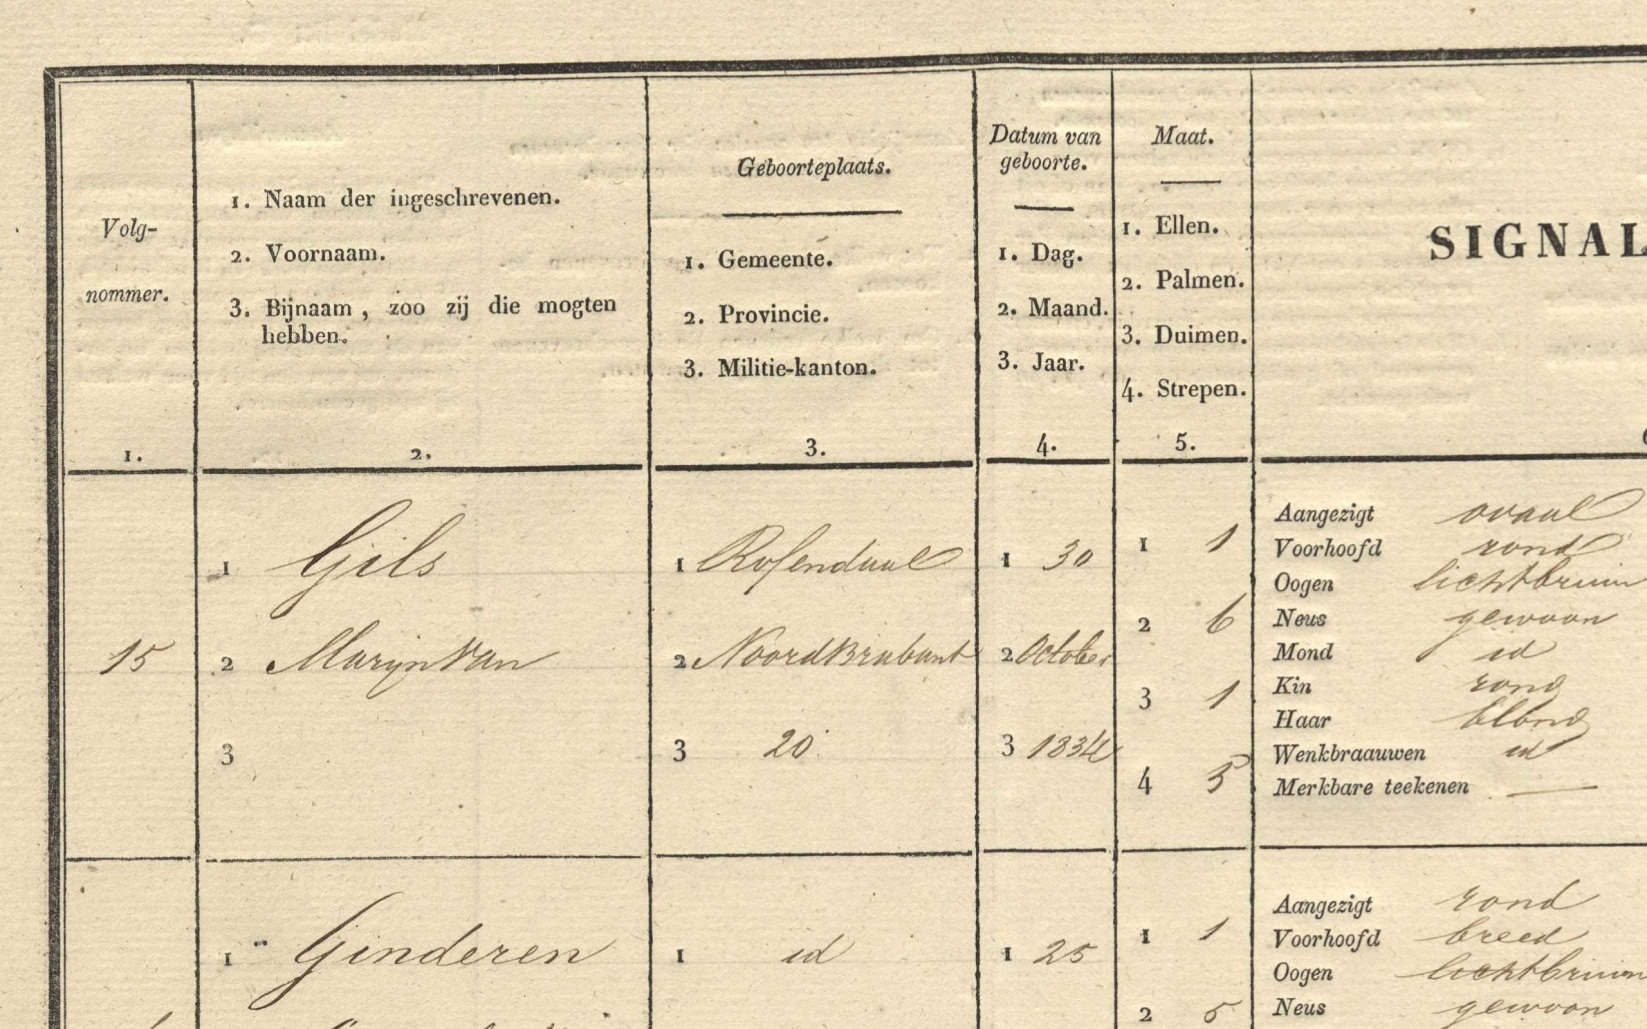 Volg-
nommer.
1.
1. Naam der ingeschrevenen.
2. Voornaam.
3. Bijnaam, zoo zij die mogten
hebben.
2.
Geboorteplaats.
1. Gemeente.
2. Provincie.
3. Militie-kanton.
3.
Datum van
geboorte.
1. Dag.
2. Maand.
3. Jaar.
4.
Maat.
1. Ellen.
2. Palmen.
3. Duimen.
4. Strepen.
5.
SIGNAL
15
1 Gils
2 Marijn van
3
1 Rosendaal
2 Noord Brabant
3 20
1 30
2 October
3 1834
1 1
2 6
3 1
4 5
Aangezigt ovaal
Voorhoofd rond
Oogen lichtbruin
Neus gewoon
Mond id
Kin rond
Haar blond
Wenkbraauwen id
Merkbare teekenen —
1 Ginderen
1 id
1 25
1 1
2 5
Aangezigt rond
Voorhoofd breed
Oogen lichtbruin
Neus gewoon